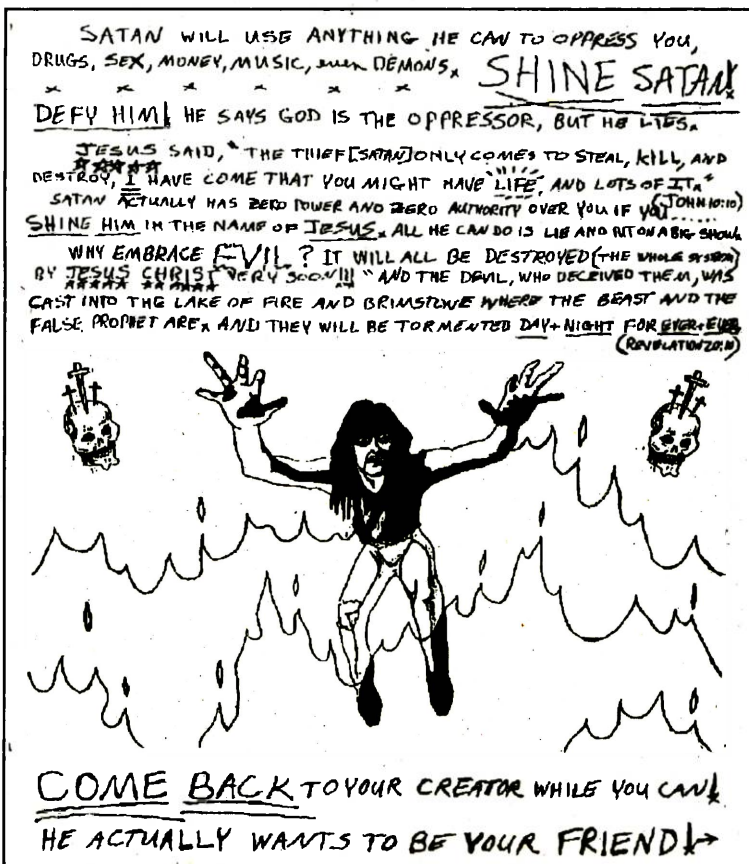 SATAN WILL USE ANYTHING HE CAN TO OPPRESS YOU,
DRUGS, SEX, MONEY, MUSIC, even DEMONS. SHINE SATAN!
DEFY HIM! HE SAYS GOD IS THE OPPRESSOR, BUT HE LIES.
JESUS SAID, "THE THIEF [SATAN] ONLY COMES TO STEAL, KILL, AND
DESTROY, I HAVE COME THAT YOU MIGHT HAVE 'LIFE', AND LOTS OF IT."
(JOHN 10:10)
SATAN ACTUALLY HAS ZERO POWER AND ZERO AUTHORITY OVER YOU IF YOU
SHINE HIM IN THE NAME OF JESUS. ALL HE CAN DO IS LIE AND PUT ON A BIG SHOW.
WHY EMBRACE EVIL? IT WILL ALL BE DESTROYED (THE WHOLE SYSTEM)
BY JESUS CHRIST VERY SOON!!! "AND THE DEVIL, WHO DECEIVED THEM, WAS
CAST INTO THE LAKE OF FIRE AND BRIMSTONE WHERE THE BEAST AND THE
FALSE PROPHET ARE. AND THEY WILL BE TORMENTED DAY + NIGHT FOR EVER + EVER
(REVELATION 20:10)
COME BACK TO YOUR CREATOR WHILE YOU CAN!
HE ACTUALLY WANTS TO BE YOUR FRIEND! →